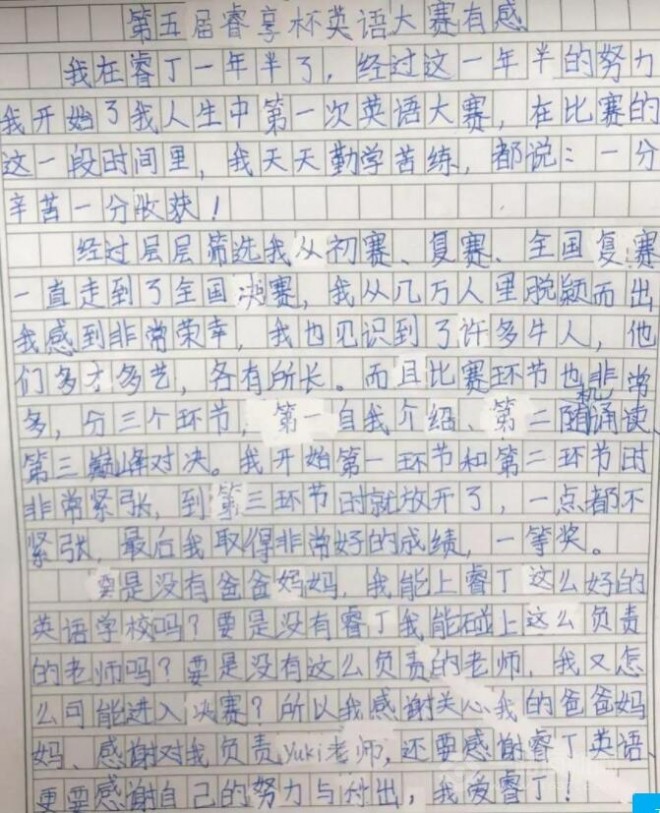 第五届睿享杯英语大赛有感
我在睿丁一年半了，经过这一年半的努力
我开始了我人生中第一次英语大赛，在比赛的
这一段时间里，我天天勤学苦练，都说：一分
辛苦一分收获！
经过层层筛选我从初赛、复赛、全国复赛
一直走到了全国决赛，我从几万人里脱颖而出
我感到非常荣幸，我也见识到了许多牛人，他
们多才多艺，各有所长。而且比赛环节也非常
多，分三个环节，第一自我介绍、第二随机诵读、
第三巅峰对决。我开始第一环节和第二环节时
非常紧张，到第三环节时就放开了，一点都不
紧张，最后我取得非常好的成绩，一等奖。
要是没有爸爸妈妈，我能上睿丁这么好的
英语学校吗？要是没有睿丁我能碰上这么负责
的老师吗？要是没有这么负责的老师，我又怎
么可能进入决赛？所以我感谢关心我的爸爸妈
妈、感谢对我负责Yuki老师，还要感谢睿丁英语、
更要感谢自己的努力与付出，我爱睿丁！